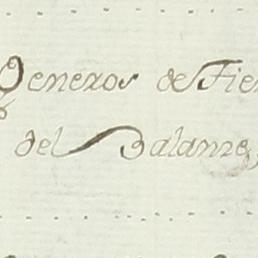 Generos de Tien
del Balanze